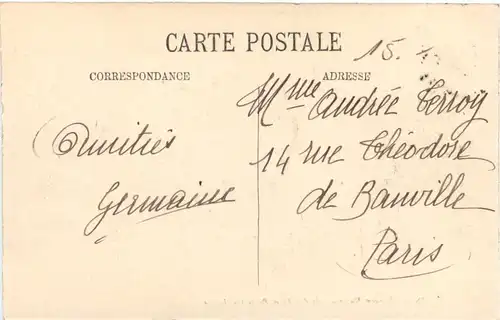 CARTE POSTALE
15.
CORRESPONDANCE
ADRESSE
Mme Andrée Terroy
Amitiés
14 rue Théodore
Germaine
de Banville
Paris